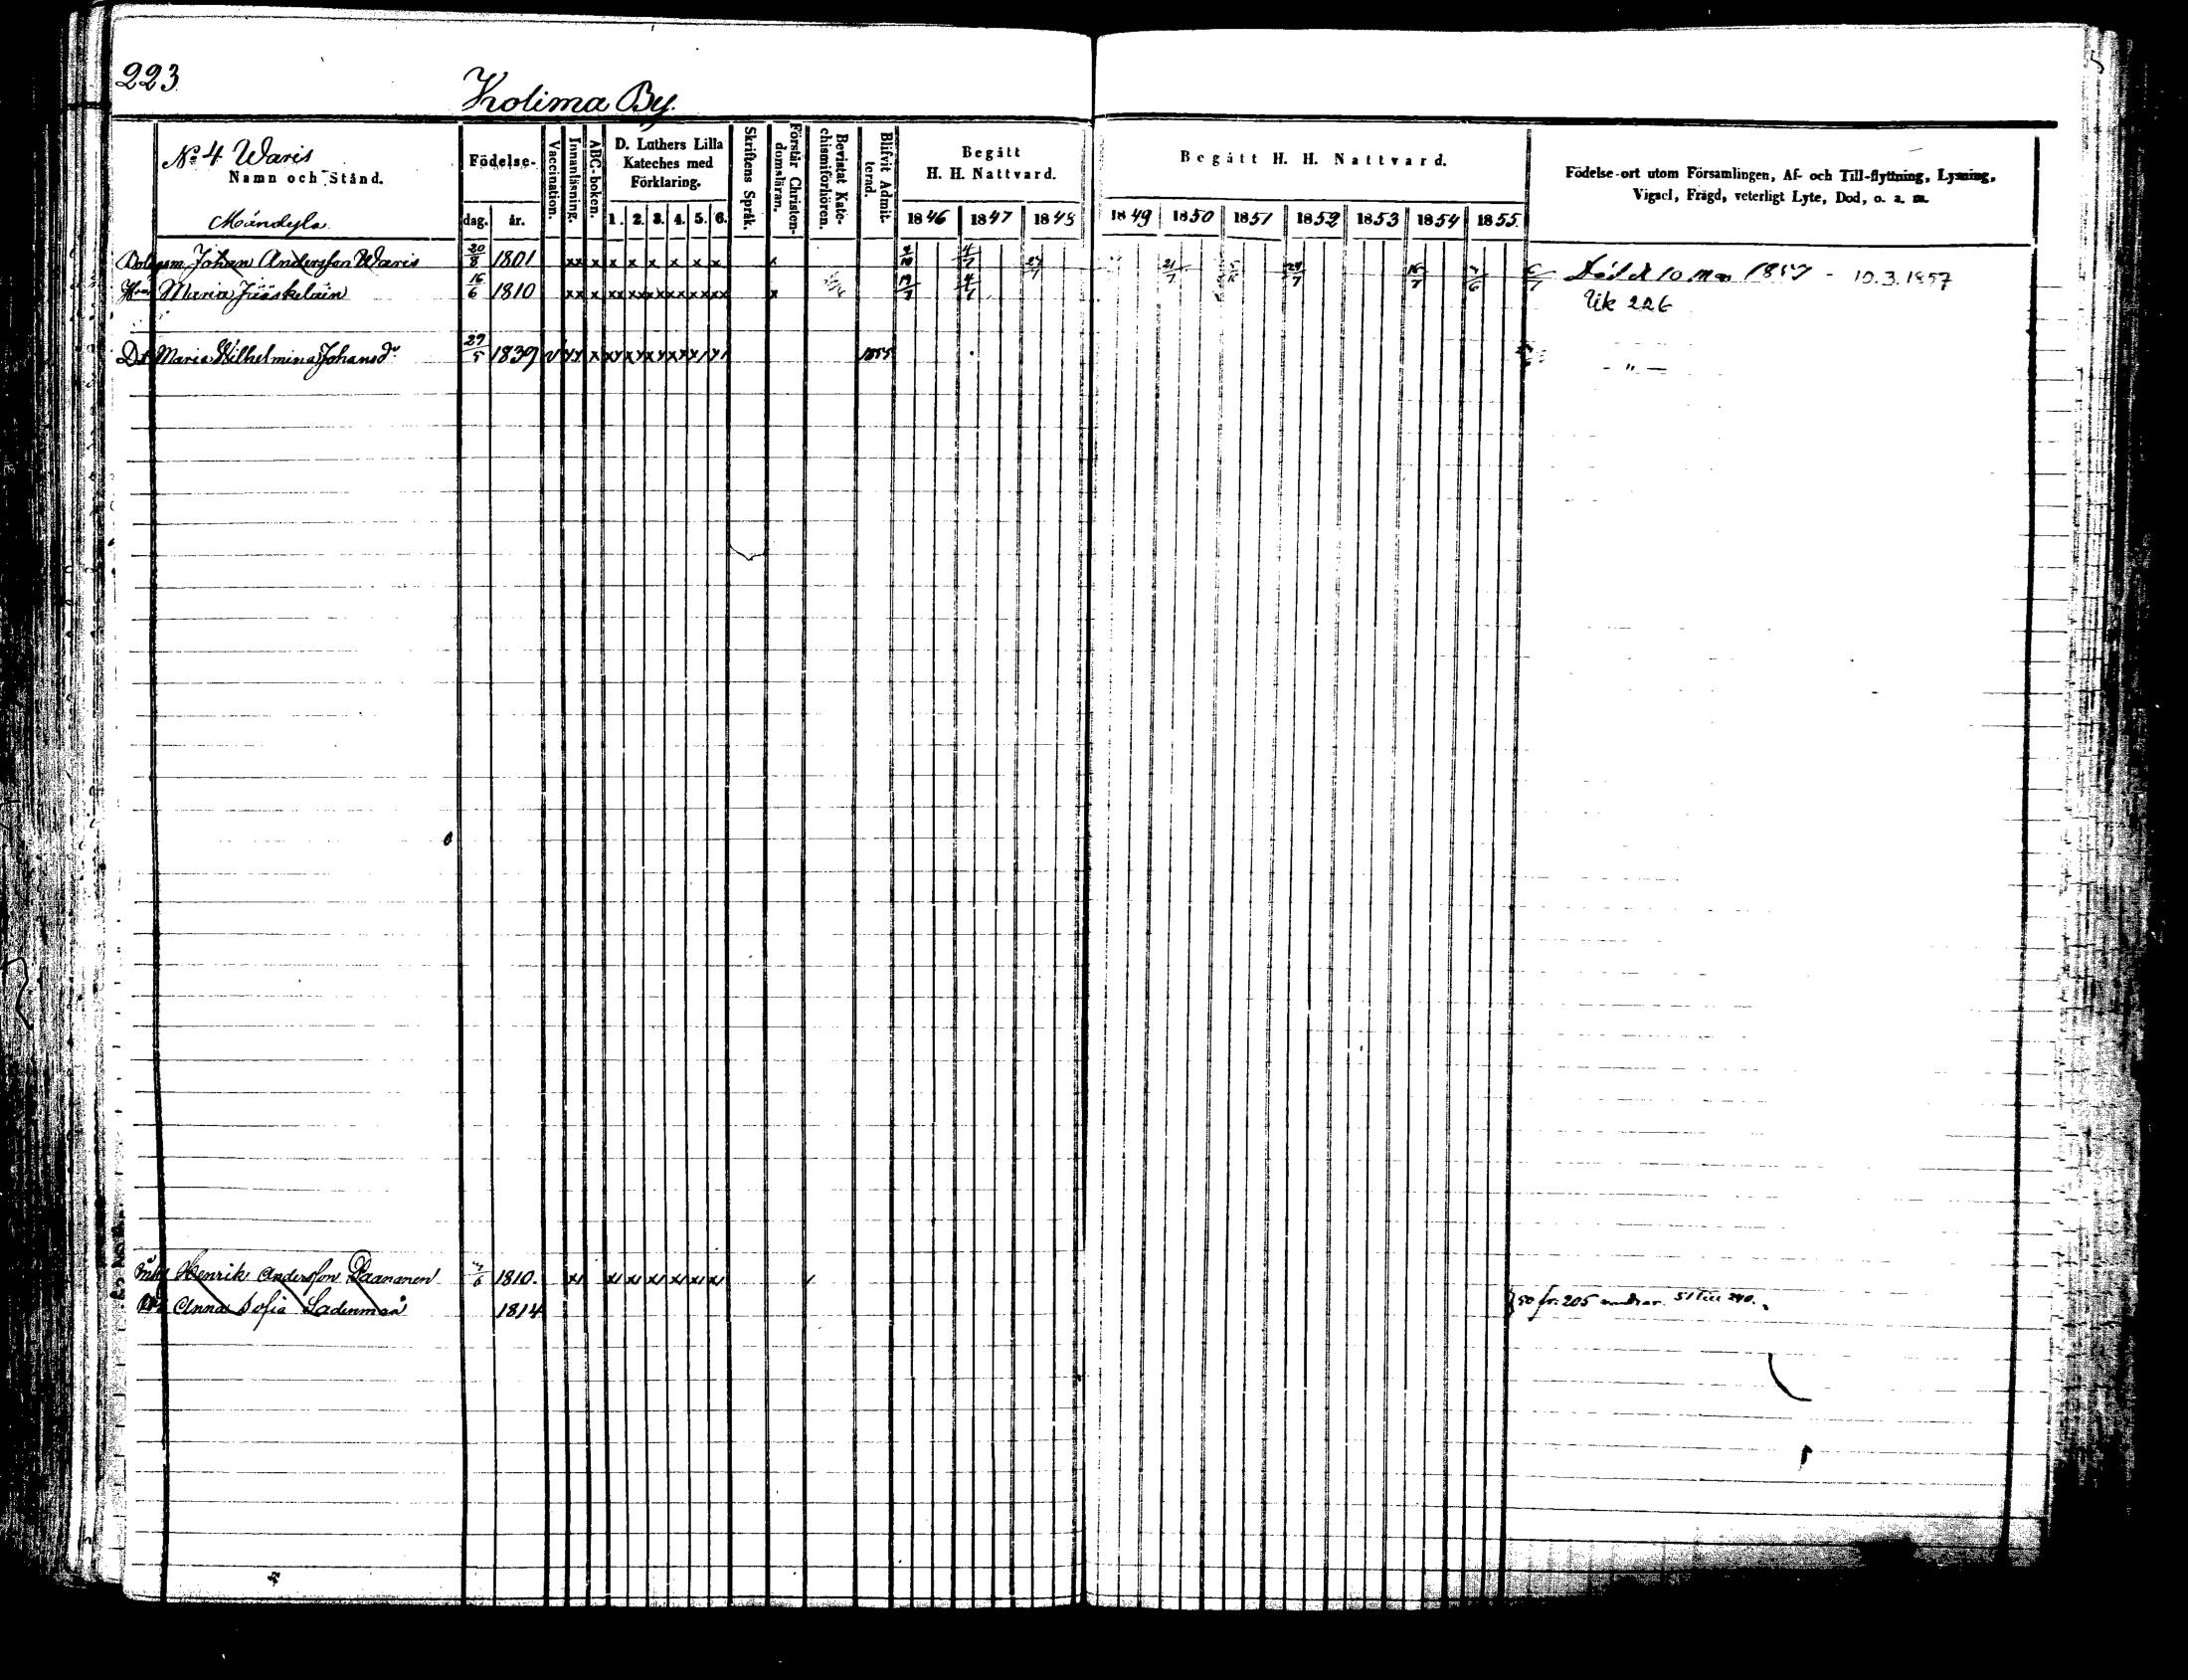 223.
Kolima By.
No 4 Waris
Namn och Stånd.
Mändylä
Födelse-
dag. år.
Vaccination.
Innanläsning.
ABC-boken.
D. Luthers Lilla
Kateches med
Förklaring.
1. 2. 3. 4. 5. 6.
Skriftens Språk.
Förstår Christen-
domsläran.
Bevistat Kate-
chismiförhören.
Blifvit Admit-
terad.
Begått
H. H. Nattvard.
1846 1847 1848
Begått H. H. Nattvard.
1849 1850 1851 1852 1853 1854 1855.
Födelse-ort utom Församlingen, Af- och Till-flyttning, Lysning,
Vigsel, Frägd, veterligt Lyte, Död, o. s. m.
Johan Andersson Waris 20/8 1801 xx x x x x x x x x 4/7 21/7 24/7 Död d 10 1857 - 10.3.1857
Maria Jääskeläin 16/6 1810 xx x xx xx xx xx xx xx x 19/7 4/7 Uk 226
Dr Maria Wilhelmina Johansdr 29/5 1839 1855 - " -
Henrik Andersson Paananen 1810.
Anna Sofia Ladenmaa 1814 50 fr. 205 51 till 240.